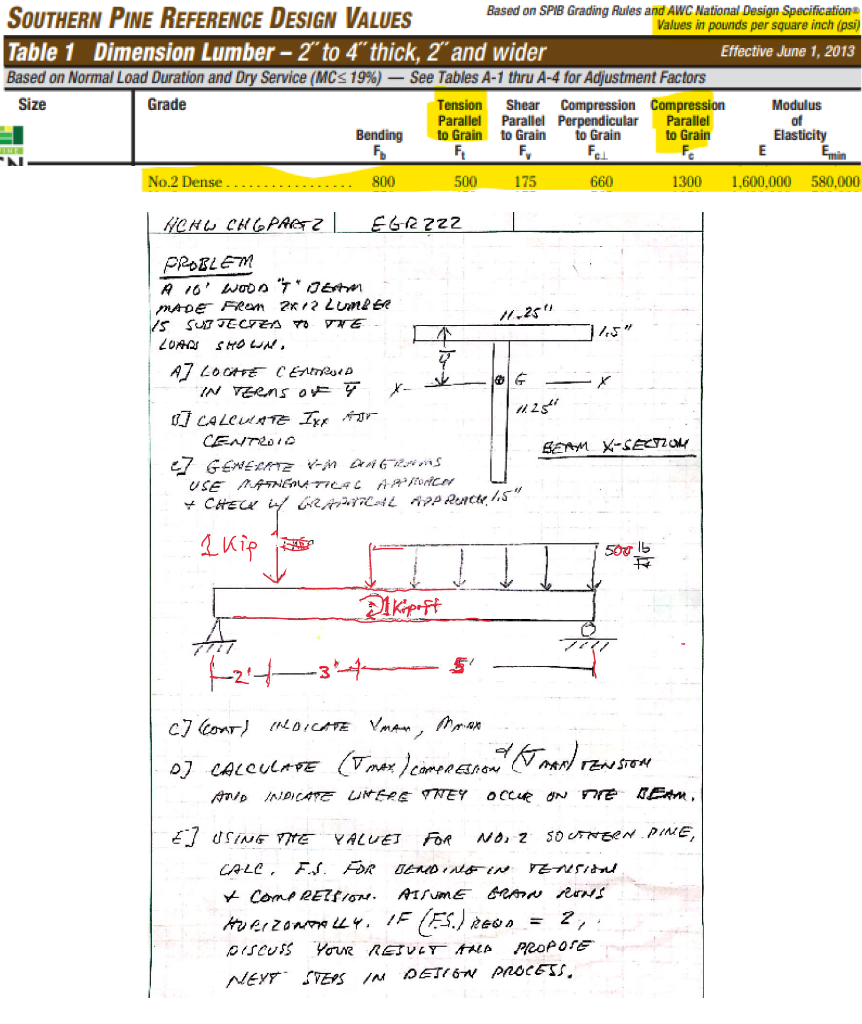 SOUTHERN PINE REFERENCE DESIGN VALUES
Based on SPIB Grading Rules and AWC National Design Specification®
Values in pounds per square inch (psi)
Table 1 Dimension Lumber – 2˝ to 4˝ thick, 2˝ and wider
Effective June 1, 2013
Based on Normal Load Duration and Dry Service (MC≤ 19%) — See Tables A-1 thru A-4 for Adjustment Factors
Size Grade Bending Fb Tension Parallel to Grain Ft Shear Parallel to Grain Fv Compression Perpendicular to Grain Fc⊥ Compression Parallel to Grain Fc Modulus of Elasticity E Emin
No.2 Dense . . . . . . . . . . . . . . . . . 800 500 175 660 1300 1,600,000 580,000
HCHW CH6PART2 EGR222
PROBLEM
A 10' WOOD "T" BEAM
MADE FROM 2X12 LUMBER
IS SUBJECTED TO THE
LOADS SHOWN.
A] LOCATE CENTROID
IN TERMS OF ȳ
B] CALCULATE Ixx ABT
CENTROID
C] GENERATE V-M DIAGRAMS
USE MATHEMATICAL APPROACH
+ CHECK W/ GRAPHICAL APPROACH.
11.25"
1.5"
ȳ
X
G
X
11.25"
BEAM X-SECTION
1.5"
1 Kip
500 lb/ft
1 Kip·ft
2'
3'
5'
C] (CONT) INDICATE VMAX, MMAX
D] CALCULATE (σMAX)COMPRESSION & (σMAX) TENSION
AND INDICATE WHERE THEY OCCUR ON THE BEAM.
E] USING THE VALUES FOR NO. 2 SOUTHERN PINE,
CALC. F.S. FOR BENDING IN TENSION
+ COMPRESSION. ASSUME GRAIN RUNS
HORIZONTALLY. IF (F.S.) REQD = 2,
DISCUSS YOUR RESULT AND PROPOSE
NEXT STEPS IN DESIGN PROCESS.